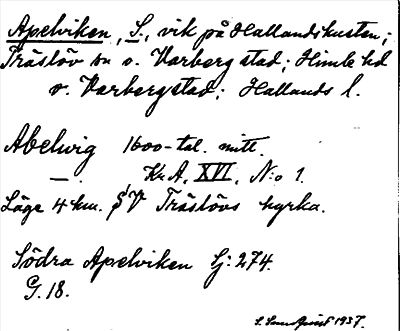 Apelviken, S., vik på Hallandskusten;
Träslöv sn o. Varberg stad; Himle hd
o. Varberg stad; Hallands l.
Abelwig 1600-tal. mitt.
—. Kr.A. XVI. N:o 1.
Läge 4 km. V Träslövs kyrka.
Södra Apelviken Sj: 274.
G. 18.
1937.